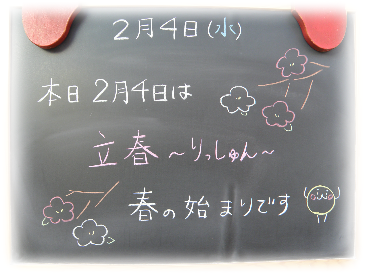 2月4日(水)
本日2月4日は
立春～りっしゅん～
春の始まりです